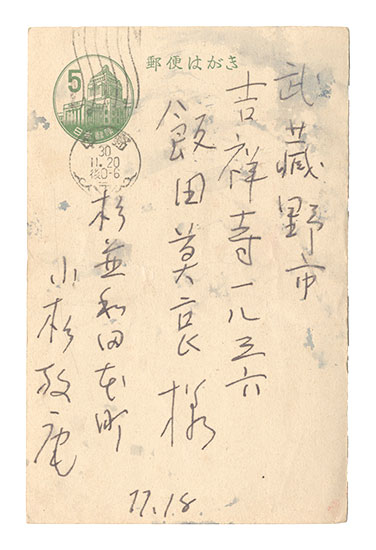 郵便はがき
5
30
11.20
後0-6
武藏野市
吉祥寺一八三六
飯田莫哀様
杉並和田本町
小杉放庵
11.18.